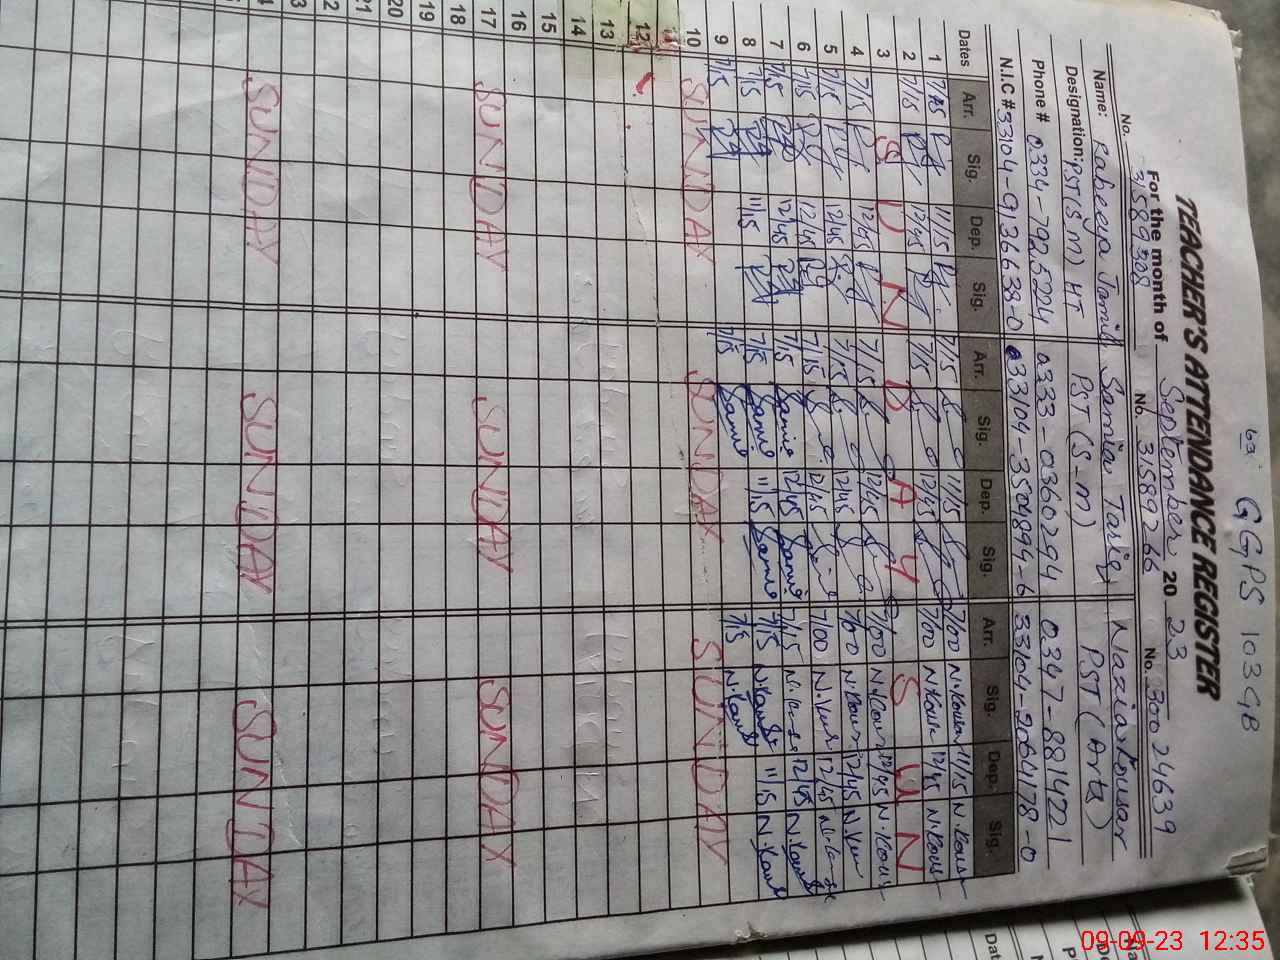 GGPS 103 GB
TEACHER'S ATTENDANCE REGISTER
For the month of September 2023
No. 31589308 No. 31589266 No. 30024639
Name: Rabeeya Jamil Samia Tariq Nazia Kousar
Designation: PST (S.m) HT PST (S-m) PST (Arts)
Phone # 0334-7925224 0333-0360294 0347-8814221
N.I.C # 33104-9136638-0 33104-3504894-6 33104-2064178-0
Dates Arr. Sig. Dep. Sig. Arr. Sig. Dep. Sig. Arr. Sig. Dep. Sig.
1 7/15 11/15 7/15 11/15 7/00 N.Kousr 11/15 N.Kousr
2 7/15 12/45 7/15 12/45 7/00 N.Kousr 12/45 N.Kousr
3 S U N D A Y S U N
4 7/15 12/45 7/15 12/45 7/00 N.Kousr 12/45 N.Kousr
5 7/15 12/45 7/15 12/45 7/00 N.Kousr 12/45
6 7/15 12/45 7/15 12/45 7/00 12/45
7 7/15 12/45 7/15 Samia 12/45 Samia 7/15 12/45 N.Kousr
8 7/15 11/15 7/15 Samia 11/15 Samia 7/15 N.Kousr 11/15 N.Kousr
9 7/15 7/15 Samia 7/15 N.Kousr
10 SUNDAY SUNDAY SUNDAY
11
12
13
14
15
16
17 SUNDAY SUNDAY SUNDAY
18
19
20
21
22
23
24 SUNDAY SUNDAY SUNDAY
09-09-23 12:35